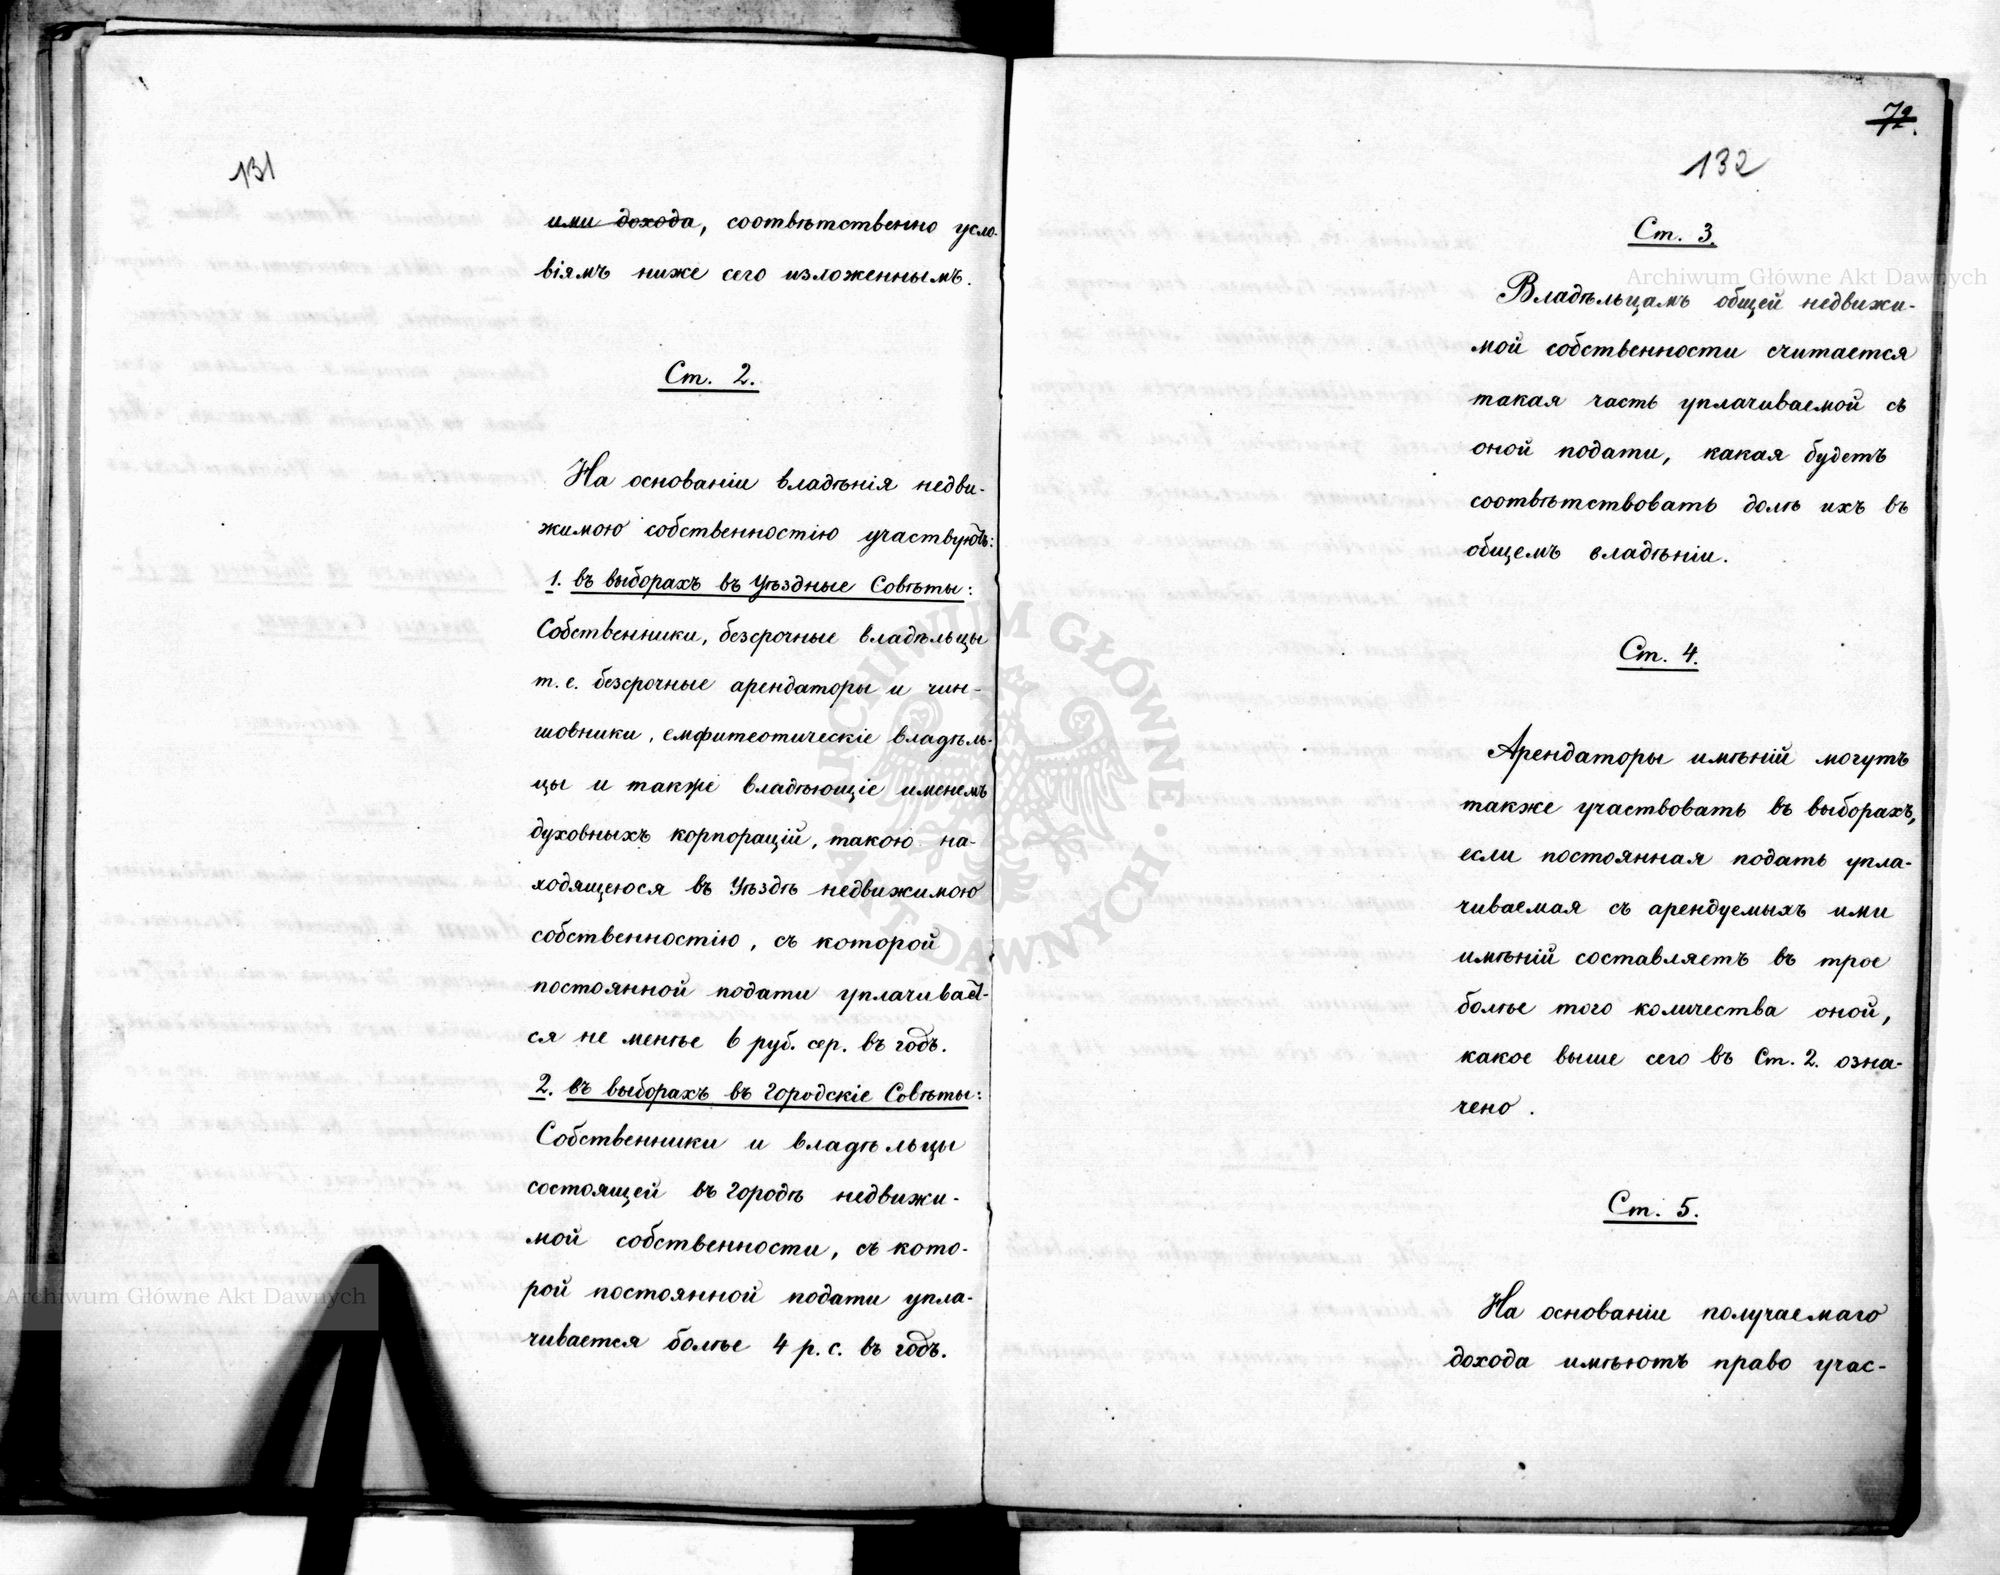 131
ими дохода, соотвѣтственно усло-
віямъ ниже сего изложеннымъ.
Ст. 2.
На основаніи владѣнія недви-
жимою собственностію участвуютъ:
1. въ выборахъ въ Уѣздные Совѣты:
Собственники, безсрочные владѣльцы
т. е. безсрочные арендаторы и чин-
шовники, емфитеотическіе владѣль-
цы и также владѣющіе именемъ
духовныхъ корпорацій, такою на-
ходящеюся въ Уѣздѣ недвижимою
собственностію, съ которой
постоянной подати уплачивает-
ся не менѣе 6 руб. сер. въ годъ.
2. въ выборахъ въ Городскіе Совѣты:
Собственники и владѣльцы
состоящей въ Городѣ недвижи-
мой собственности, съ кото-
рой постоянной подати упла-
чивается болѣе 4 р. с. въ годъ.
72.
132
Ст. 3.
Владѣльцамъ общей недвижи-
мой собственности считается
такая часть уплачиваемой съ
оной подати, какая будетъ
соотвѣтствовать долѣ ихъ въ
общемъ владѣніи.
Ст. 4.
Арендаторы имѣній могутъ
также участвовать въ выборахъ,
если постоянная подать упла-
чиваемая съ арендуемыхъ ими
имѣній составляетъ въ трое
болѣе того количества оной,
какое выше сего въ Ст. 2. озна-
чено.
Ст. 5.
На основаніи получаемаго
дохода имѣютъ право учас-
Archiwum Główne Akt Dawnych
Archiwum Główne Akt Dawnych
ARCHIWUM GŁÓWNE · AKT DAWNYCH ·